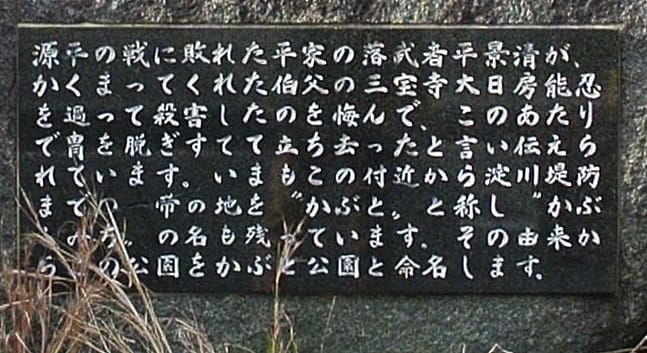 源平の戦に敗れた平家の落武者平景清が、
かくまってくれた伯父の三宝寺大日房能忍
を過って殺害したのを悔んで、このあたり
で冑を脱ぎすてて立ち去ったと言い伝えら
れています。いまもこの付近から淀川堤防
までの一帯の地を〝かぶと〟と称し〝かぶ
とみち〟の名も残っています。その由来か
らこの公園をかぶと公園と命名します。